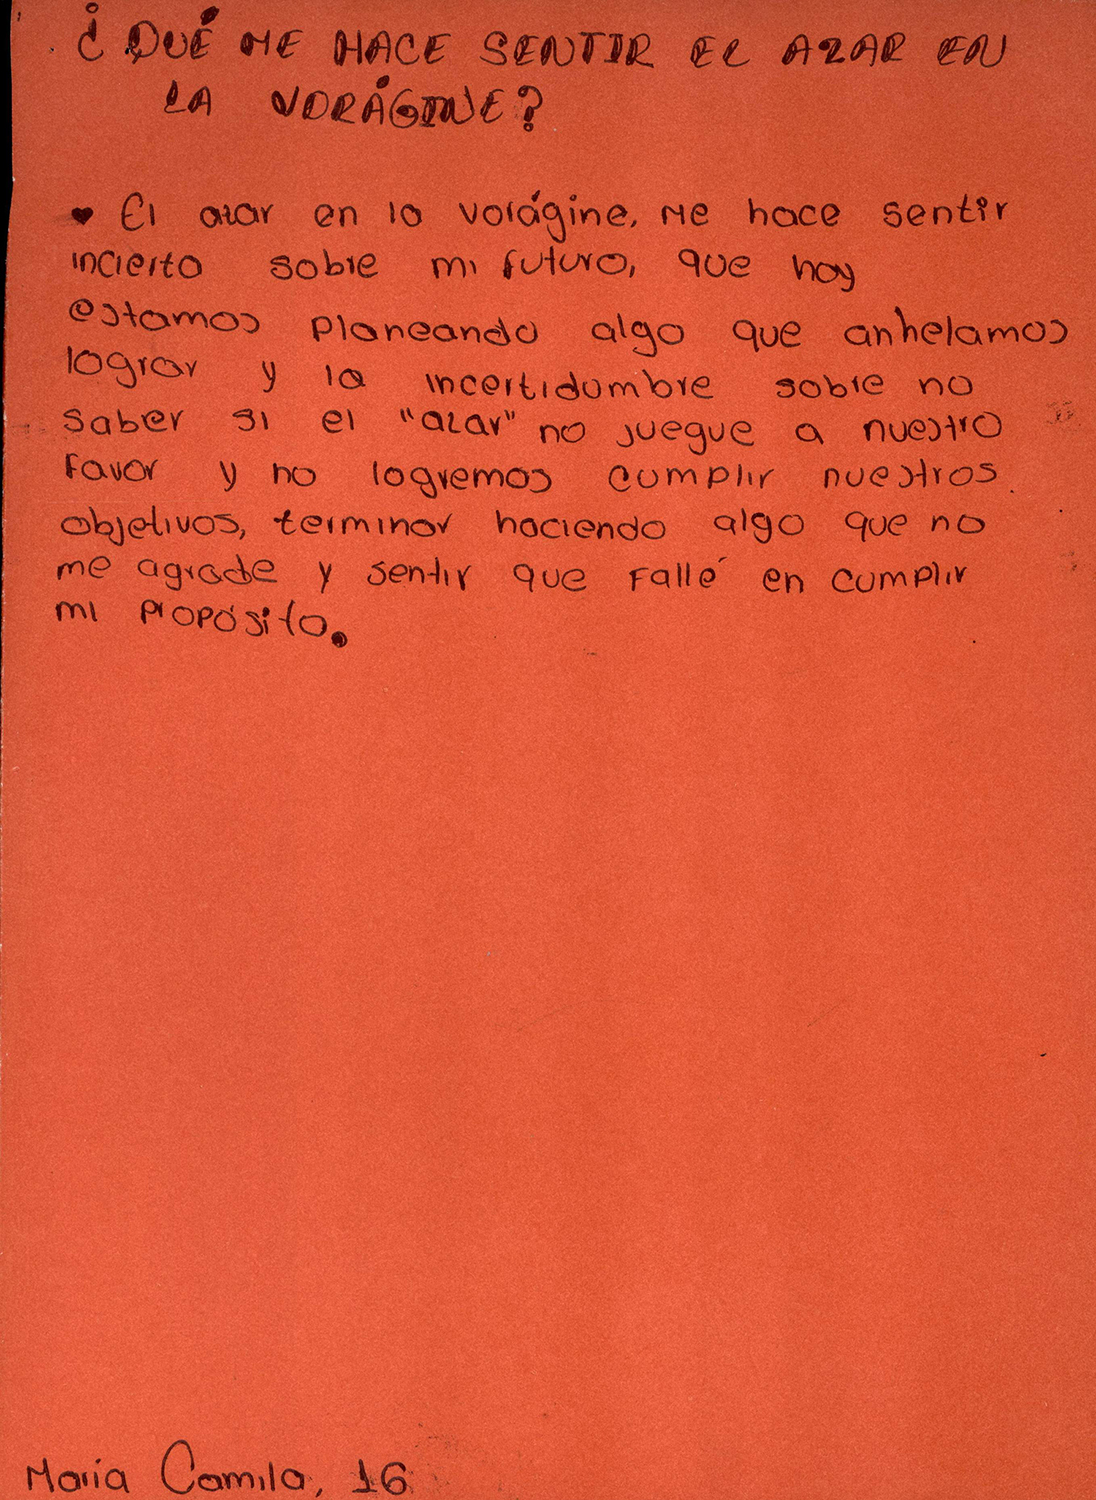 ¿QUÉ ME HACE SENTIR EL AZAR EN
LA VORÁGINE?
♥ El azar en la vorágine, me hace sentir
incierto sobre mi futuro, que hoy
estamos planeando algo que anhelamos
lograr y la incertidumbre sobre no
saber si el "azar" no juegue a nuestro
favor y no logremos cumplir nuestros
objetivos, terminar haciendo algo que no
me agrade y sentir que fallé en cumplir
mi propósito.
María Camila, 16